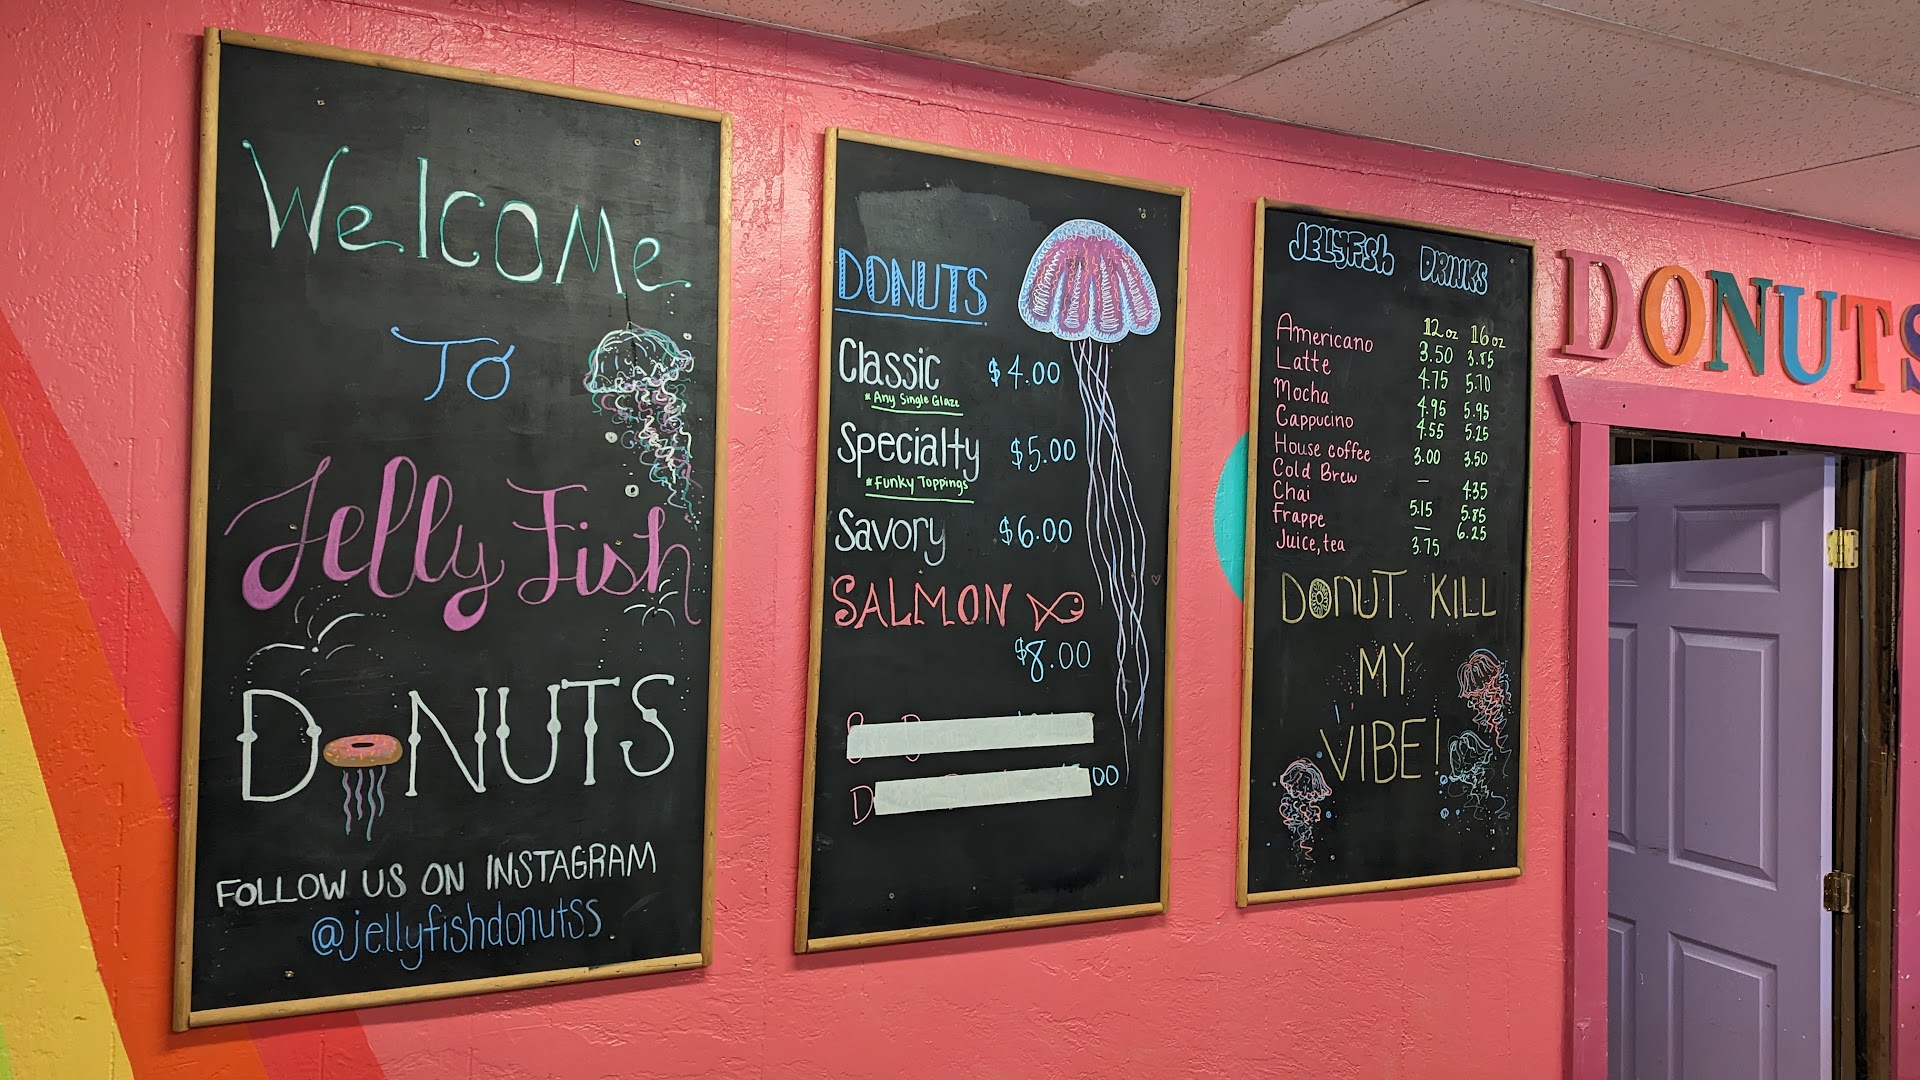 Welcome
To
Jelly Fish
DONUTS
FOLLOW US ON INSTAGRAM
@jellyfishdonutss
DONUTS
Classic $4.00
* Any Single Glaze
Specialty $5.00
* Funky Toppings
Savory $6.00
SALMON
$8.00
D 00
JELLYFISH DRINKS
12 oz 16 oz
Americano 3.50 3.85
Latte 4.75 5.70
Mocha 4.95 5.95
Cappucino 4.55 5.25
House coffee 3.00 3.50
Cold Brew — 4.35
Chai 5.15 5.85
Frappe — 6.25
Juice, tea 3.75
DONUT KILL
MY
VIBE!
DONUTS